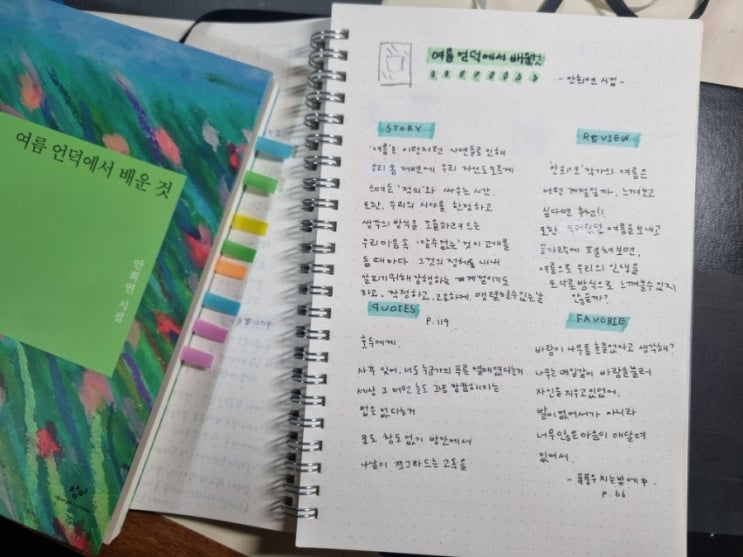 여름 언덕에서 배운 것
안희연 시집
창비
여름 언덕에서 배운 것
- 안희연 시집 -
STORY
'여름'은 이런저런 사연들로 인해
우리 몸 저변에 우리 자신도 모르게
스며든 '정의'와 싸우는 시간.
또한, 우리의 시야를 한정하고
생각의 방식을 조율하려 드는
우리 마음속 '알 수 없는' 것이 고개를
들 때마다 그것의 정체를
살피기 위해 강행하는 계절이기도
하고, 걱정하고, 고요하게, 맹렬할 수 있는 날
REVIEW
'안희연' 작가의 여름은
어떤 계절일까. 느껴보고
싶다면 추천!!
또한 여름을 보내고
끝자락에 펼쳐보면,
여름으로 우리의 인생을
또다른 방식으로 느껴볼 수 있지
않을까?
QUOTES
P. 119
호두에게.
세상 그 어떤 눈도 그냥 캄캄해지는
법은 없다는거
문도 창도 없이 방안에서
나날이 쪼그라드는 고독을
FAVORIE
바람이 나무를 흔들었다고 생각해?
나무는 매일같이 바람을 불러
자신을 지우고 있었어.
발이 없어서가 아니라
너무 많은 마음이 매달려
있어서.
P. 66